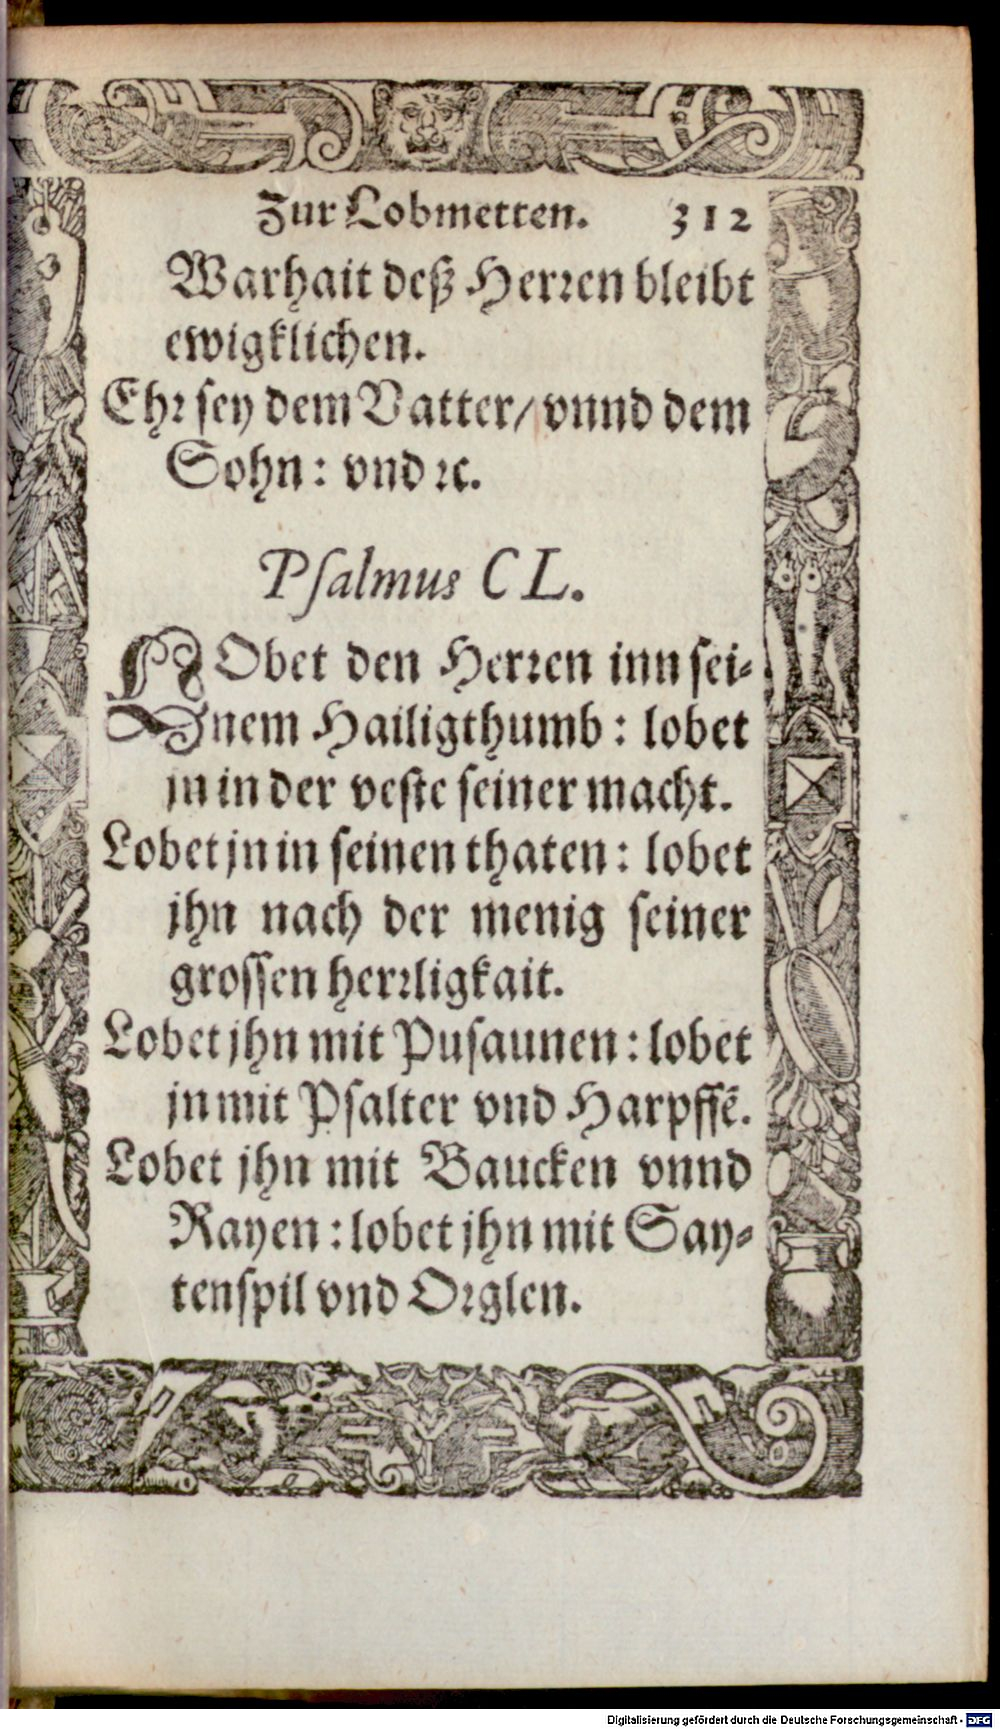 Zur Lobmetten. 312
Warhait deß Herren bleibt
ewigklichen.
Ehr sey dem Vatter/ vnnd dem
Sohn: vnd ꝛc.
Psalmus CL.
LObet den Herren inn sei⸗
nem Hailigthumb: lobet
jn in der veste seiner macht.
Lobet jn in seinen thaten: lobet
jhn nach der menig seiner
grossen herrligkait.
Lobet jhn mit Pusaunen: lobet
jn mit Psalter vnd Harpffẽ.
Lobet jhn mit Baucken vnnd
Rayen: lobet jhn mit Say⸗
tenspil vnd Orglen.
Digitalisierung gefördert durch die Deutsche Forschungsgemeinschaft - DFG